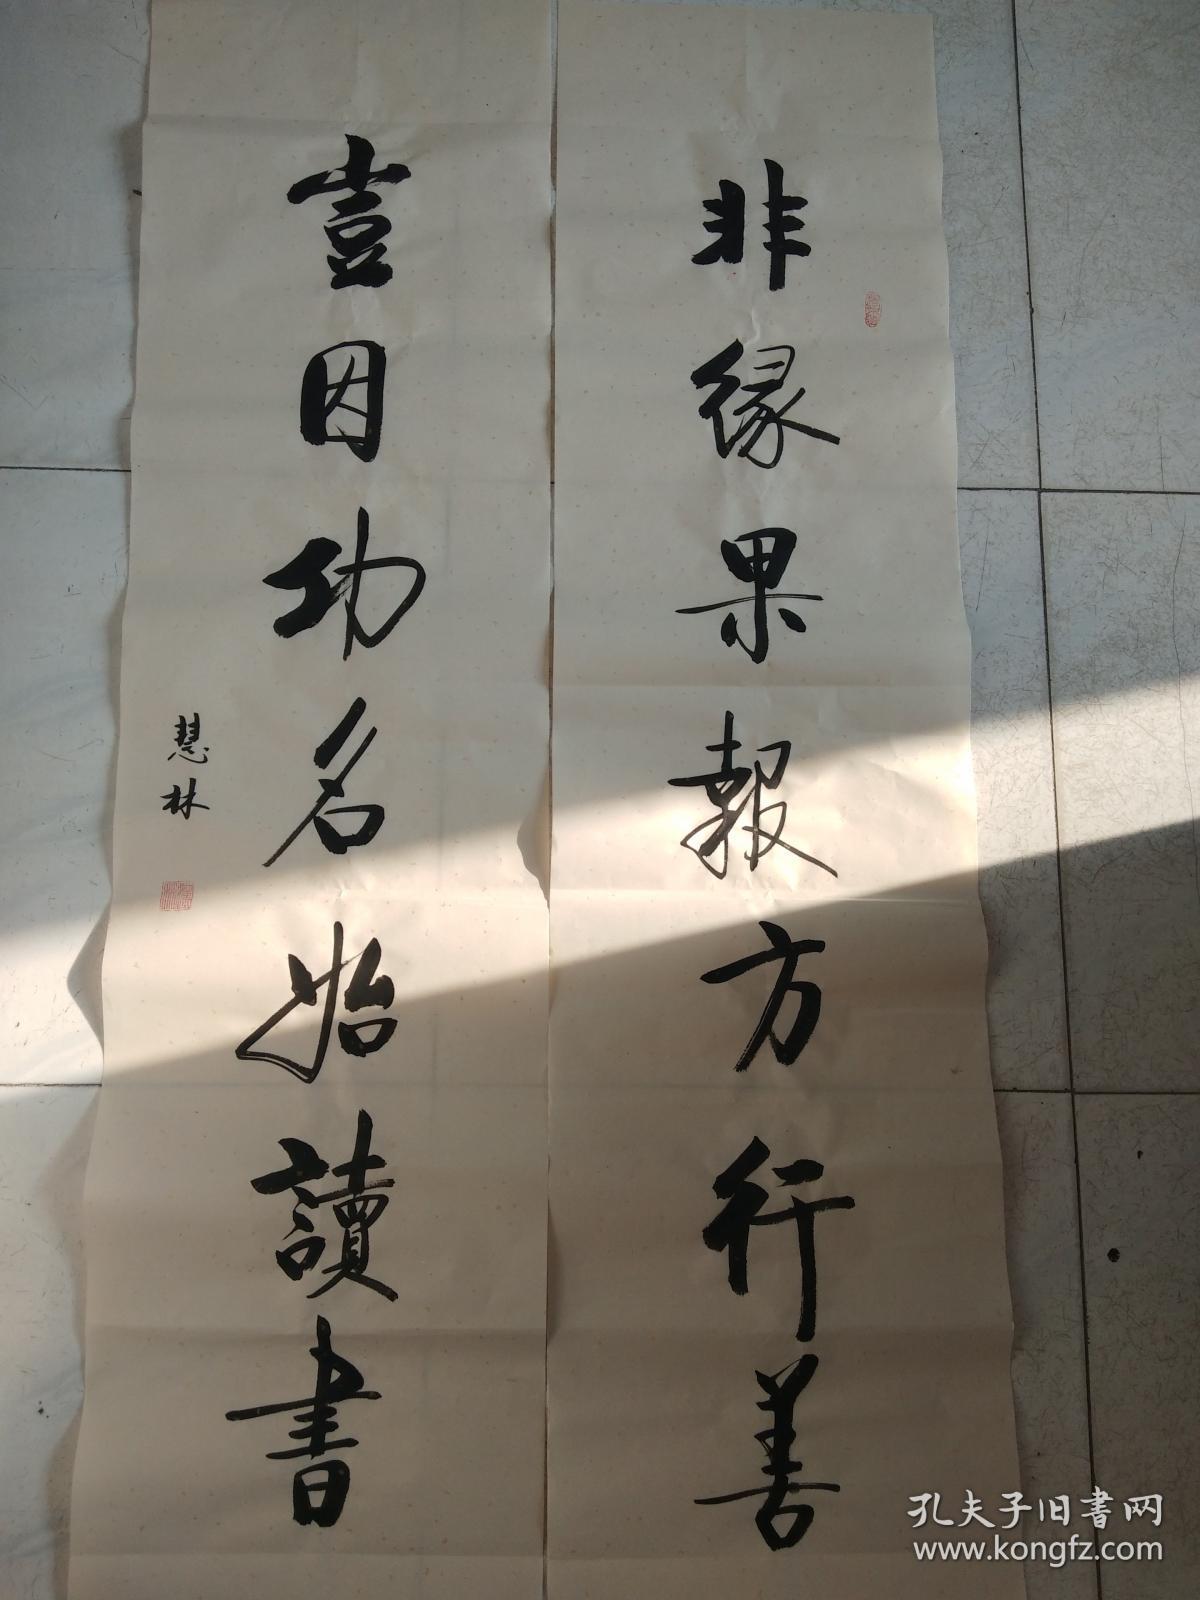 非緣果報方行善
豈因功名始讀書
慧林
孔夫子旧書网
www.kongfz.com